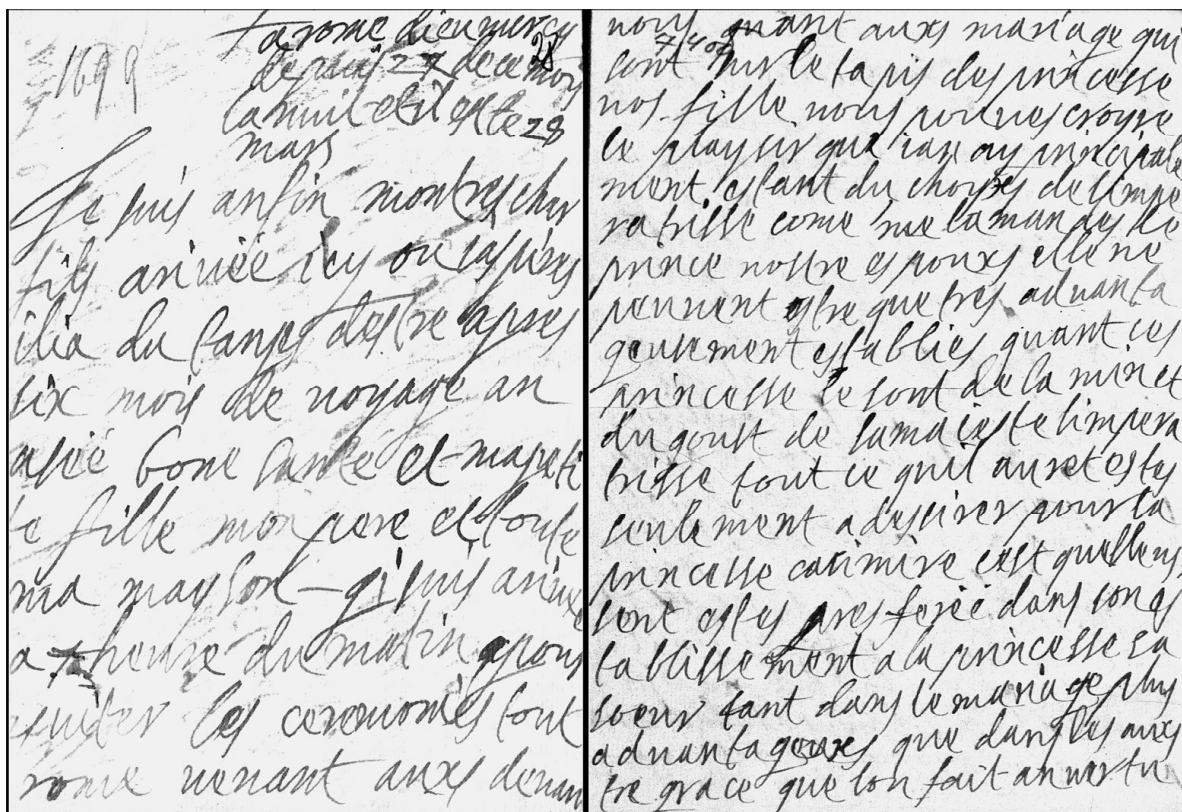 1699
A rome dieu mercy
depuis 27 de ce mois
la nuit et il est le 28
mars
Je suis anfin mon tres cher
fils arivéé icy ou iespires
il ia du tamps destre apres
six mois de voyage an
asséé bone santé et ma peti
te fille mon pere et toute
ma mayson – gi suis arivéé
a heure du matin pour
esviter les ceremonies tout
rome venant aux devan
nous quant auxs mariage qui
sont sur le tapis des princesse
vos fille vous pouves croyre
le playsir que ian ay principale
ment estant du choyxs de limpe
ratrisse come me la mandes le
prince vostre espouxs elle ne
peuvent estre que tres advanta
geusement establies quant ces
princesse le sont de la min et
du goust de sa maieste limpera
trisse tout ce quil auret estes
seulement a dessirer pour la
princesse casimire cest quelle
soit estes presferéé dans son es
tablissement a la princesse sa
soeur tant dans le mariage plus
advantageuxs que dans les auxs
tre grace que lon fait an vertu